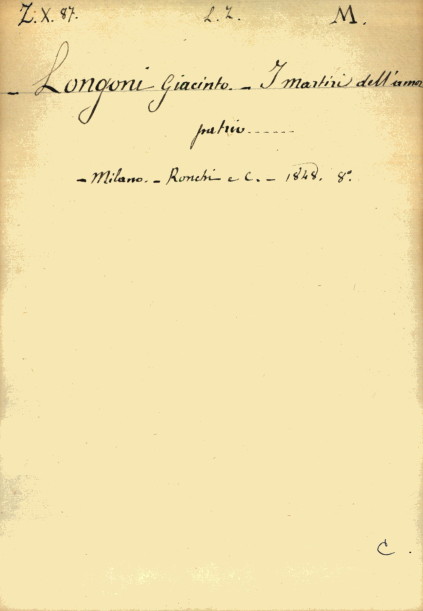 Z. X. 87. L. Z. M.
- Longoni Giacinto. - I martiri dell'amor
patrio......
- Milano. - Ronchi e C. - 1848. 8°.
C.